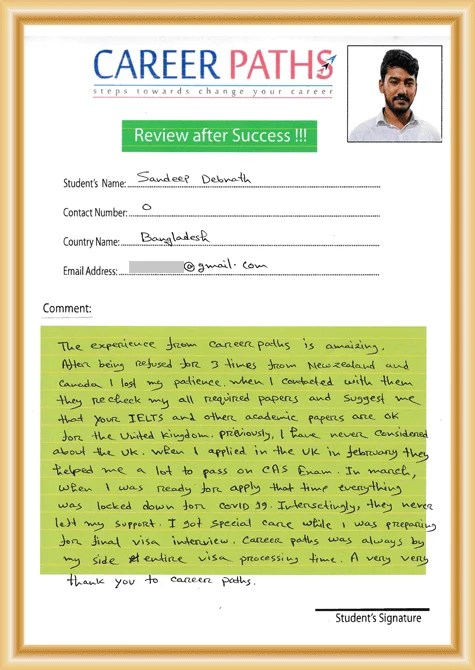 CAREER PATHS
steps towards change your career
Review after Success !!!
Student's Name: Sandeep Debnath
Contact Number: 0
Country Name: Bangladesh
Email Address: @gmail.com
Comment:
The experience from career paths is amaizing.
After being refused for 3 times from Newzealand and
Canada I lost my patience. when I contacted with them
they recheck my all required papers and suggest me
that your IELTS and other academic papers are ok
for the United kingdom. previously, I have never considered
about the UK. when I applied in the UK in february they
helped me a lot to pass on CAS Exam. In march,
when I was ready for apply that time everything
was locked down for covid 19. Intersctingly, they never
left my support. I got special care while I was preparing
for final visa interview. Career paths was always by
my side entire visa processing time. A very very
thank you to career paths.
Student's Signature